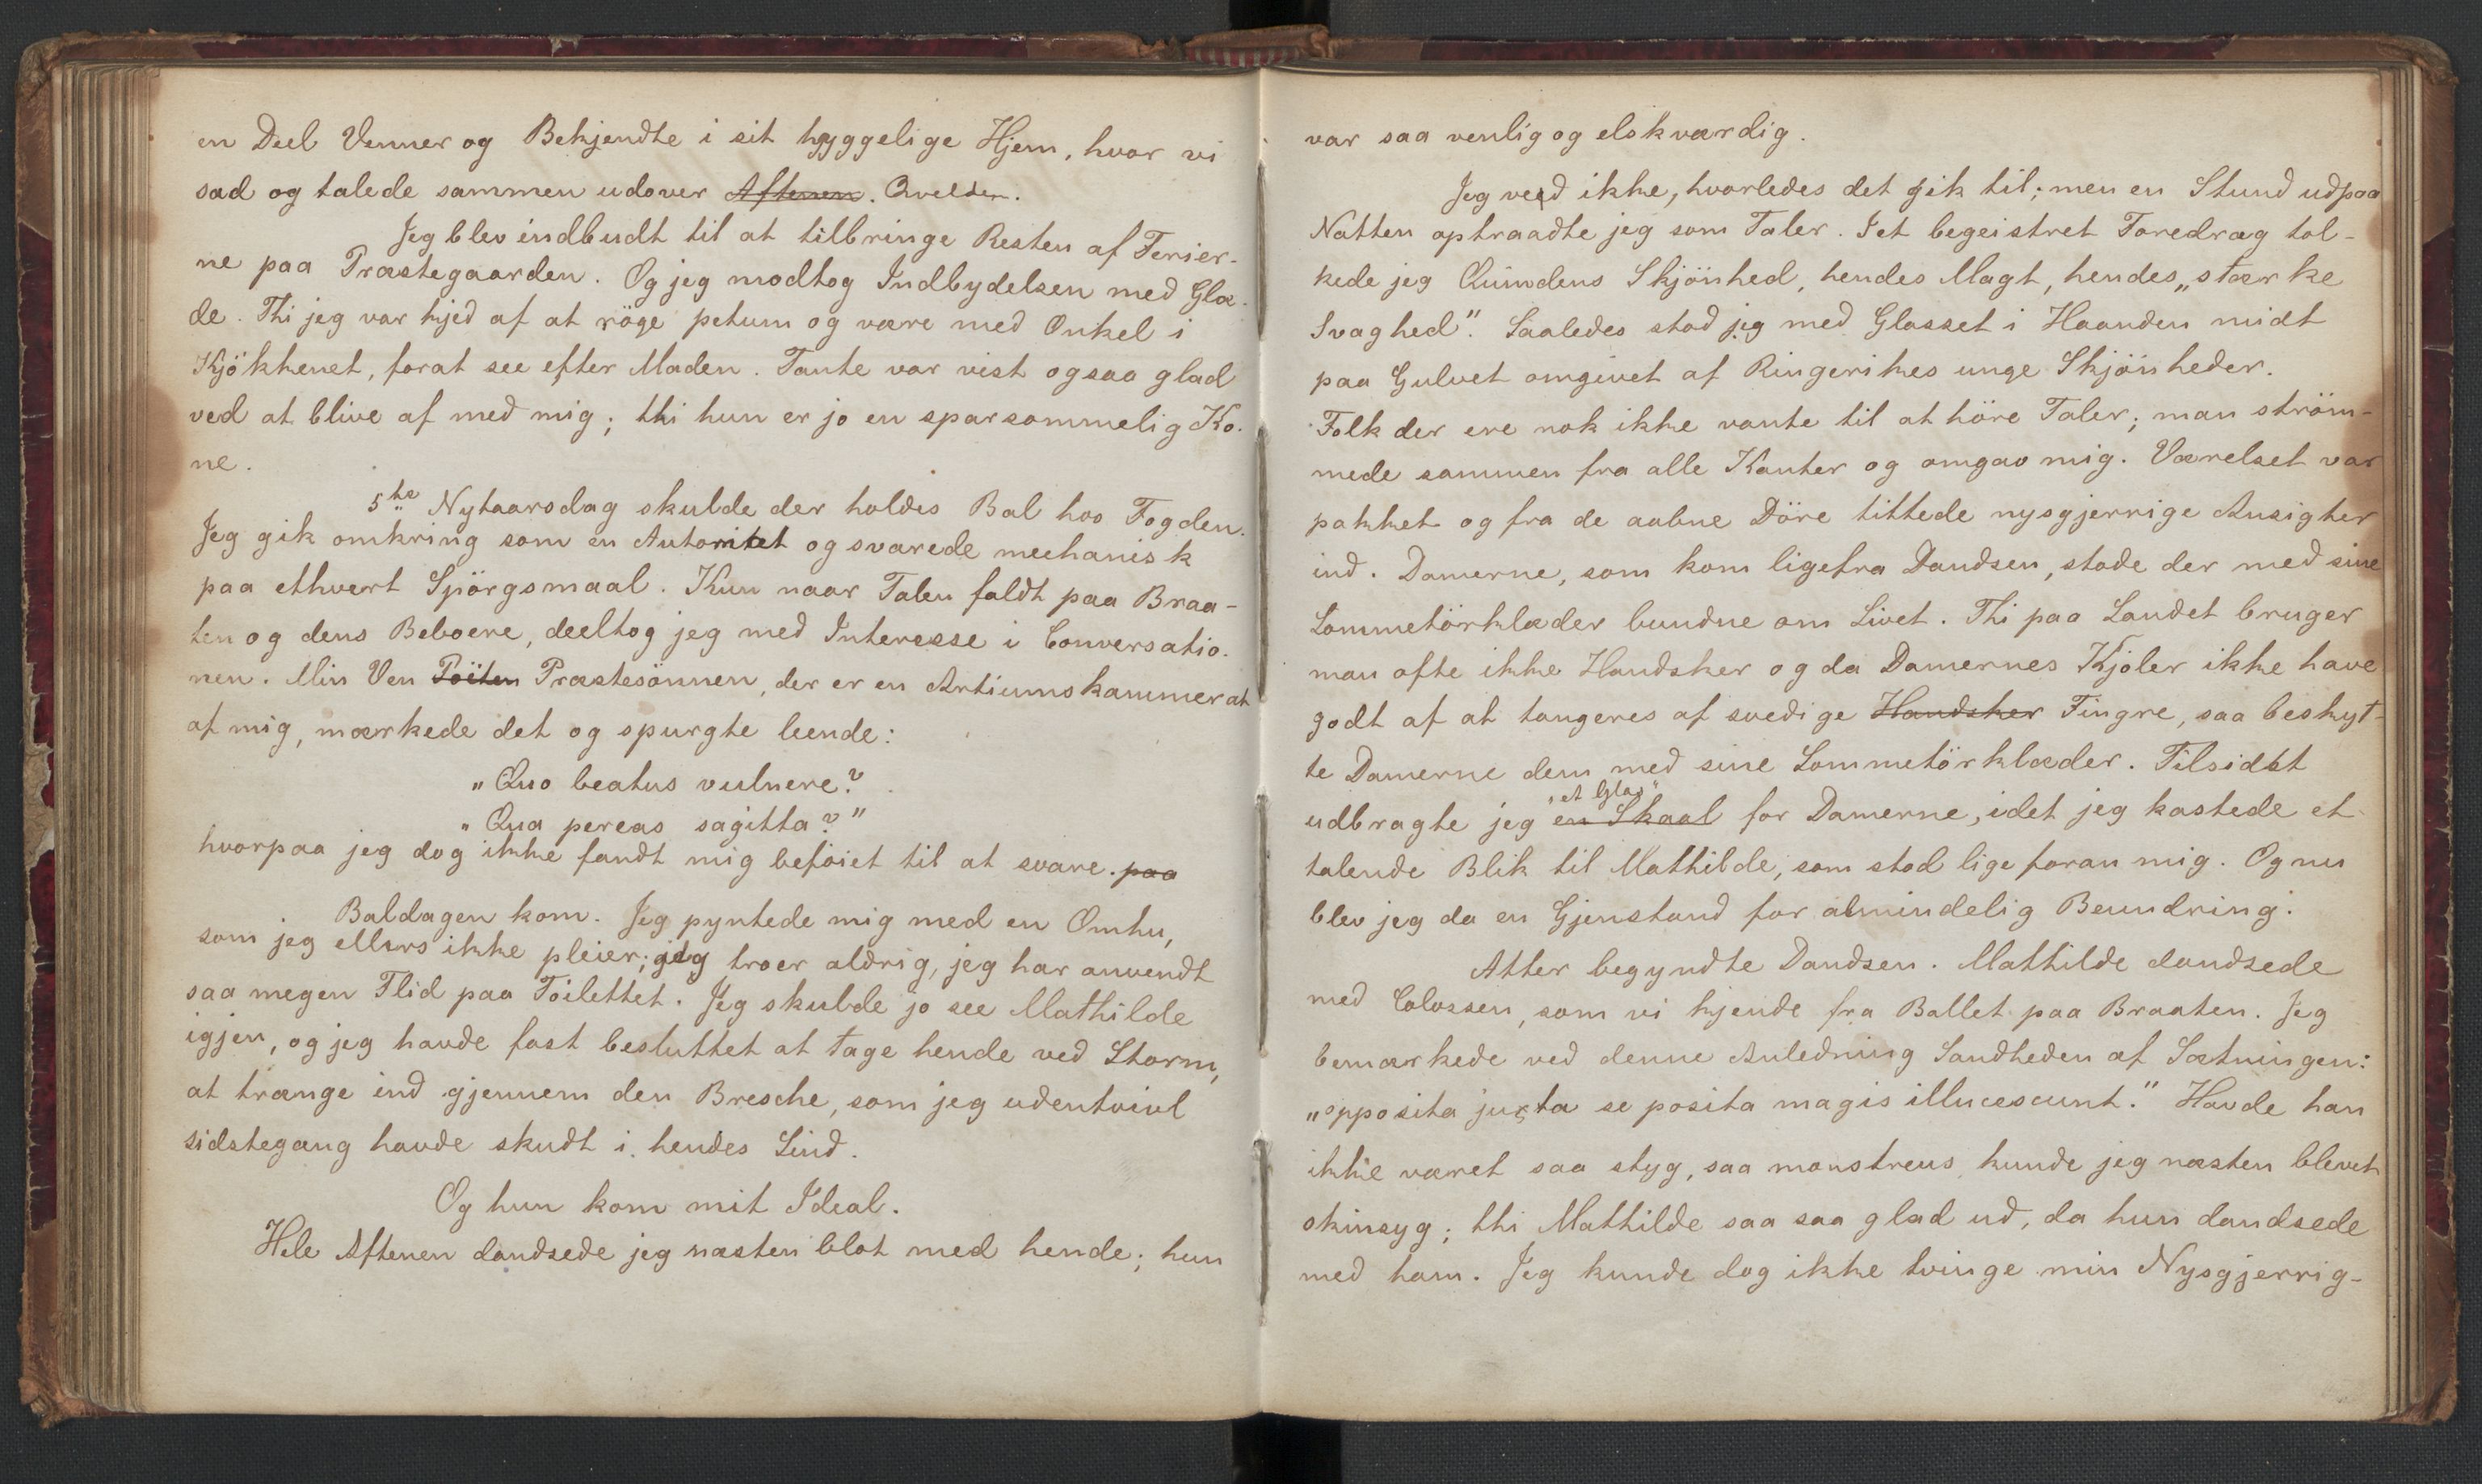 en Deel Venner og Bekjendte i sit hyggelige Hjem, hvor vi
sad og talede sammen udover Aftenen. Qvelden.
Jeg blev indbudt til at tilbringe Resten af Ferier-
ne paa Præstegaarden. Og jeg modtog Indbydelsen med Glæ-
de. Thi jeg var kjed af at röge petum og være med Onkel i
Kjökkenet, forat see efter Maden. Tante var vist ogsaa glad
ved at blive af med mig; thi hun er jo en sparsommelig Ko-
ne.
5te Nytaarsdag skulde der holdes Bal hos Fogden.
Jeg gik omkring som en Automat og svarede mechanisk
paa ethvert Spörgsmaal. Kun naar Talen faldt paa Braa-
ten og dens Beboere, deeltog jeg med Interesse i Conversatio-
nen. Min Ven Poëten Præstesönnen, der er en Artiumskammerat
af mig, mærkede det og spurgte leende:
"Quo beatus vulnere?
"Qua pereas sagitta?"
hvorpaa jeg dog ikke fandt mig beföiet til at svare. paa
Baldagen kom. Jeg pyntede mig med en Omhu,
som jeg ellers ikke pleier; jeg troer aldrig, jeg har anvendt
saa megen Flid paa Toilettet. Jeg skulde jo see Mathilde
igjen, og jeg havde fast besluttet at tage hende ved Storm,
at trænge ind gjennem den Bresche, som jeg udentvivl
sidstegang havde skudt i hendes Sind.
Og hun kom mit Ideal.
Hele Aftenen dandsede jeg næsten blot med hende; hun
var saa venlig og elskværdig.
Jeg veed ikke, hvorledes det gik til; men en Stund udpaa
Natten optraadte jeg som Taler. I et begeistret Foredrag tol-
kede jeg Qvindens Skjönhed, hendes Magt, hendes "stærke
Svaghed". Saaledes stod jeg med Glasset i Haanden midt
paa Gulvet omgivet af Ringerikes unge Skjönheder.
Folk der ere nok ikke vante til at höre Taler; man ström-
mede sammen fra alle Kanter og omgav mig. Værelset var
pakket og fra de aabne Döre tittede nysgjerrige Ansigter
ind. Damerne, som kom ligefra Dandsen, stode der med sine
Lommetörklæder bundne om Livet. Thi paa Landet bruger
man ofte ikke Handsker og da Damernes Kjoler ikke have
godt af at tangeres af svedige Handsker Fingre, saa beskyt-
te Damerne dem med sine Lommetörklæder. Tilsidst
"et Glas"
udbragte jeg en Skaal for Damerne, idet jeg kastede et
talende Blik til Mathilde, som stod lige foran mig. Og nu
blev jeg da en Gjenstand for almindelig Beundring.
Atter begyndte Dandsen. Mathilde dandsede
med Colossen, som vi kjende fra Ballet paa Braaten. Jeg
bemærkede ved denne Anledning Sandheden af Sætningen:
"opposita juxta se posita magis illucescunt." Havde han
ikke været saa styg, saa monstreus, kunde jeg næsten blevet
skinsyg; thi Mathilde saa saa glad ud, da hun dandsede
med ham. Jeg kunde dog ikke tvinge min Nysgjerrig-